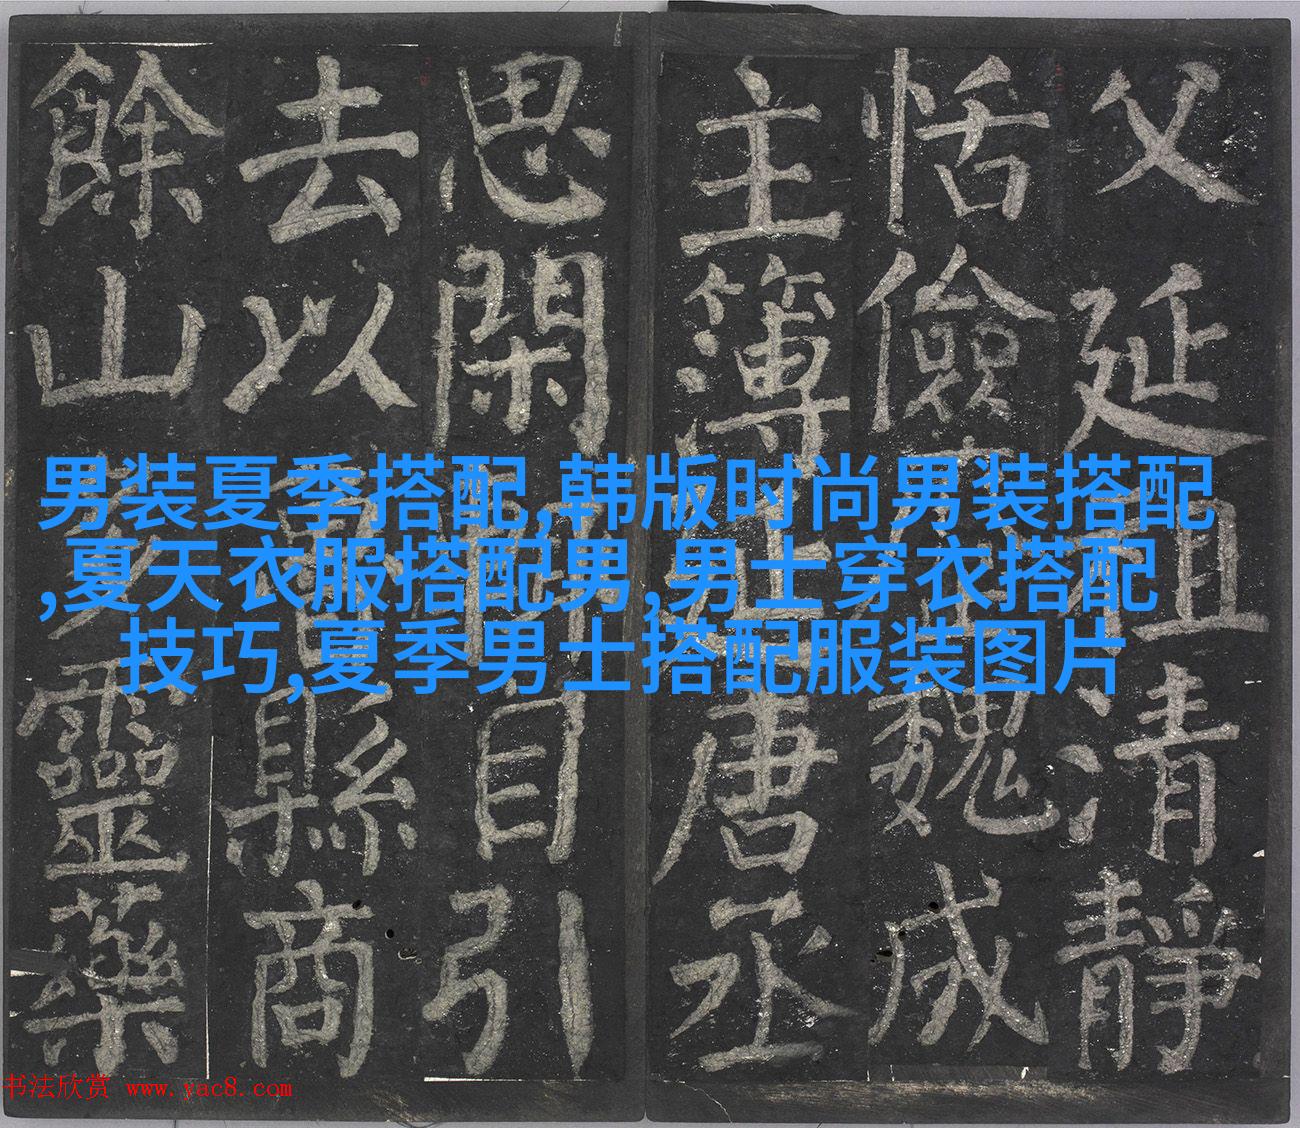 父延祖清靜
恬儉歷魏成
主簿延唐丞
思閑輒自引
去以魯縣商
餘山多靈藥
男装夏季搭配,韩版时尚男装搭配
,夏天衣服搭配男,男士穿衣搭配
技巧,夏季男士搭配服装图片
书法欣赏 www.yac8.com